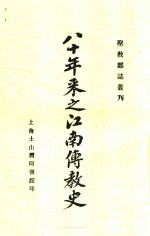 聖教雜誌叢刊
八十年來之江南傳教史
上海土山灣印書館印